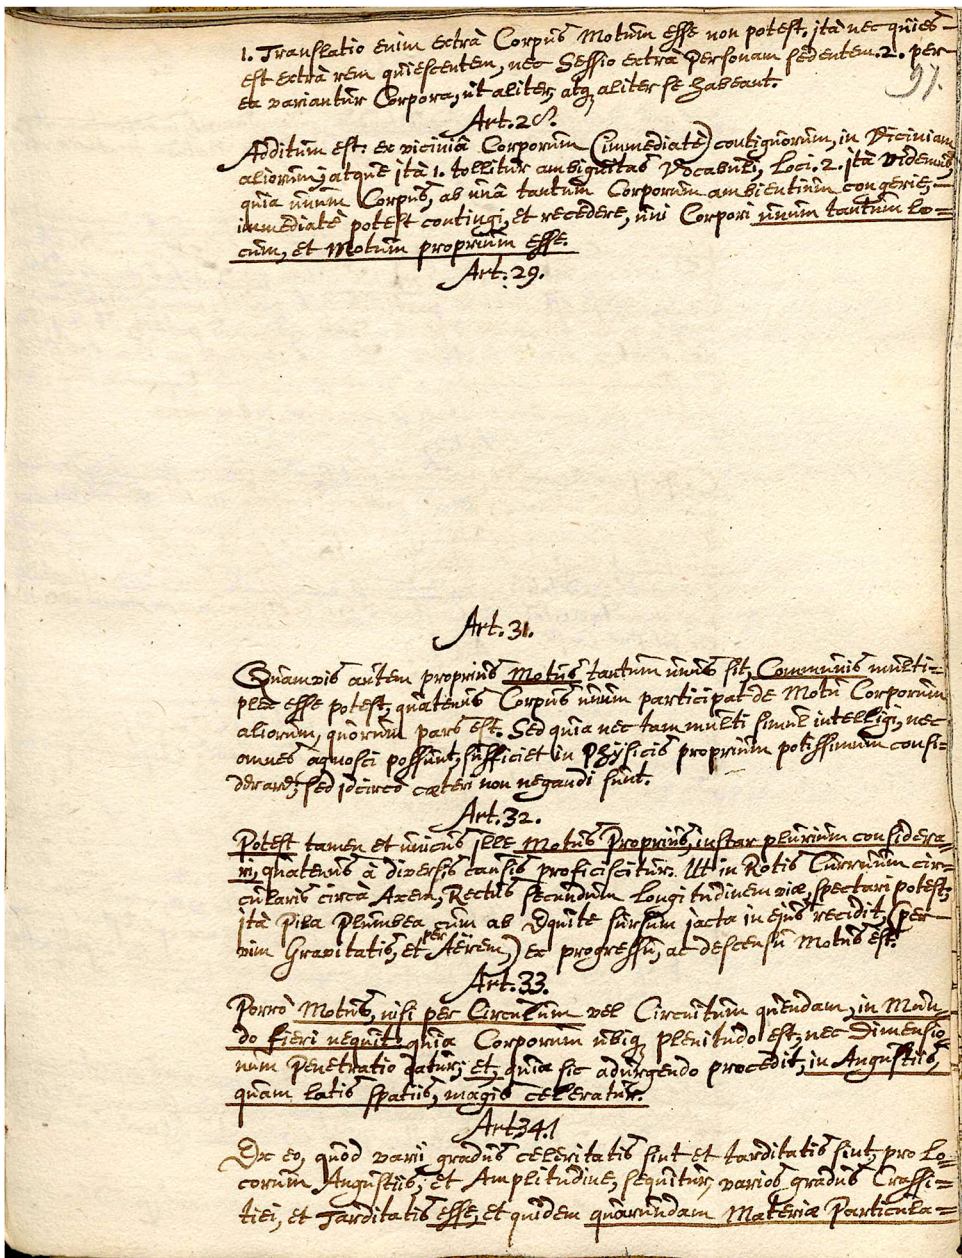 1. Translatio enim extrà Corpus Motum esse non potest, ità nec quies
est extrà rem quiescentem, nec Sessio extrà Personam sedentem. 2. per-
97.
ea variantur Corpora, ut aliter, atq aliter se habeant.
Art. 28.
Additum est: ex viciniâ Corporum (immediatè) contiguorum, in Viciniam
aliorum; atque ità 1. tollitur ambiguitas Vocabuli, Loci. 2. ità videmus,
quia unum Corpus, ab unâ tantum Corporum ambientium congerie,
immediatè potest contingi, et recedere, uni Corpori unum tantum lo=
cum, et Motum proprium esse.
Art: 29.
Art. 31.
Quamvis autem proprius Motus tantum unus sit, Communis multi=
plex esse potest, quatenus Corpus unum participat de Motu Corporum
aliorum, quorum pars est. Sed quia nec tam multi simul intelligi, nec
omnes agnosci possunt, sufficiet in Physicis proprium potissimum consi=
derare; sed idcircò cæteri non negandi sunt.
Art. 32.
Potest tamen et unicus ille Motus Proprius, instar plurium considera=
ri, quatenus à diversis causis proficiscitur. Ut in Rotis Curruum cir=
cularis circà Axem, Rectus secundum Longitudinem viæ, spectari potest,
ità Pila Plumbea cum ab Equite sursum jacta in ejus recidit, (per
vim Gravitatis, et per Aërem) ex progressu, ac descensu Motus est.
Art. 33.
Porrò Motus, nisi per Circulum vel Circuitum quendam, in Mun=
do fieri nequit: quia Corporum ubiq plenitudo est, nec Dimensio
num Penetratio datur; et, quia sic adurgendo procedit, in Angustiis,
quam latis spatiis, magis celeratur.
Art. 34.
Ex eo, quod varii gradus celeritatis sint et tarditatis sint, pro Lo=
corum Angustiis, et Amplitudine, sequitur, varios gradus Crassi=
tiei, et Tarditatis esse, et quidem quarundam Materiæ Particula=